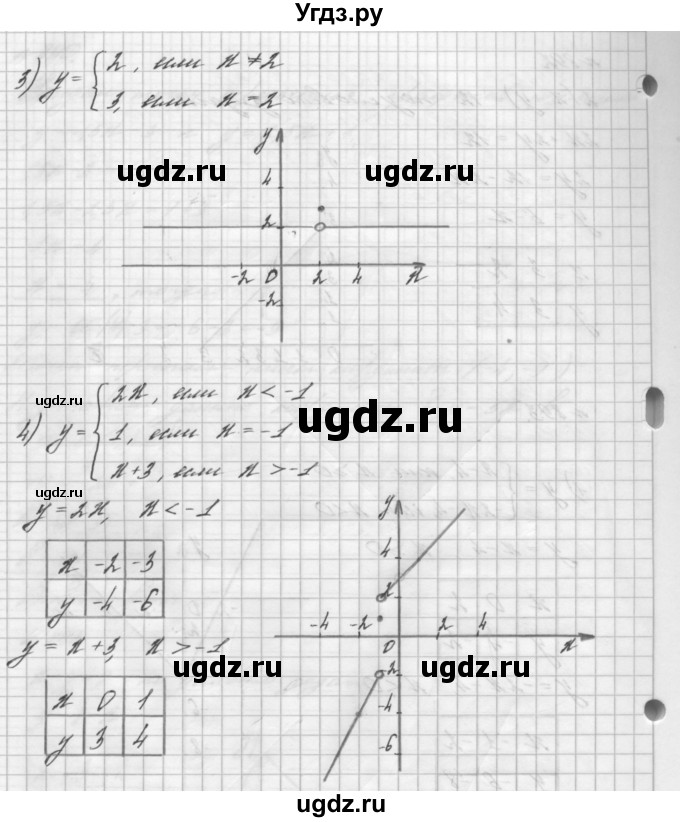 Угдз.ру
3) y = { 2, если x ≠ 2
3, если x = 2
y
ugdz.ru ugdz.ru
4
2
-2 0 2 4 x
-2
ugdz.ru
4) y = { 2x, если x < -1
1, если x = -1
x+3, если x > -1
ugdz.ru
ugdz.ru
y = 2x, x < -1
x -2 -3
y -4 -6
y
4
2
-4 -2 0 2 4 x
-2
-4
-6
y = x+3, x > -1
ugdz.ru ugdz.ru
x 0 1
y 3 4
ugdz.ru
ugdz.ru